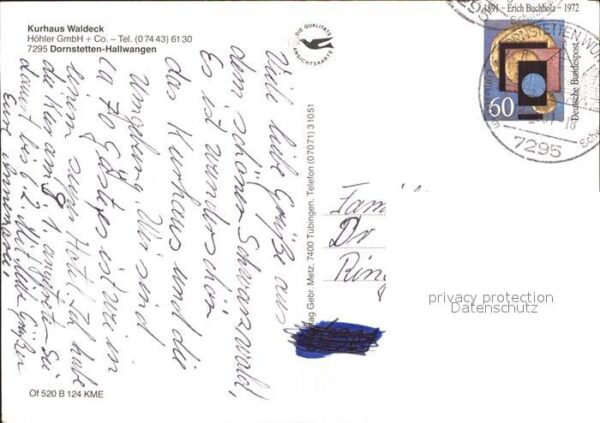 Kurhaus Waldeck
Höhler GmbH + Co. – Tel. (0 74 43) 61 30
7295 Dornstetten-Hallwangen
DIE QUALITÄTS
ANSICHTSKARTE
1891 – Erich Buchholz – 1972
Deutsche Bundespost
60
DORNSTETTEN
7295
Viele liebe Grüße aus
dem schönen Schwarzwald,
Es ist wunderschön
das Kurhaus und die
Umgebung. Wir sind
ca 70 Gäste, es ist wie in
einem Hotel. Ich habe
da Kur am
dauert bis 6.2. Mit Grüßen
Eure Annemarie
Verlag Gebr. Metz, 7400 Tübingen, Telefon (07071) 31051
Fam
Dr
Ring
privacy protection
Datenschutz
Of 520 B 124 KME